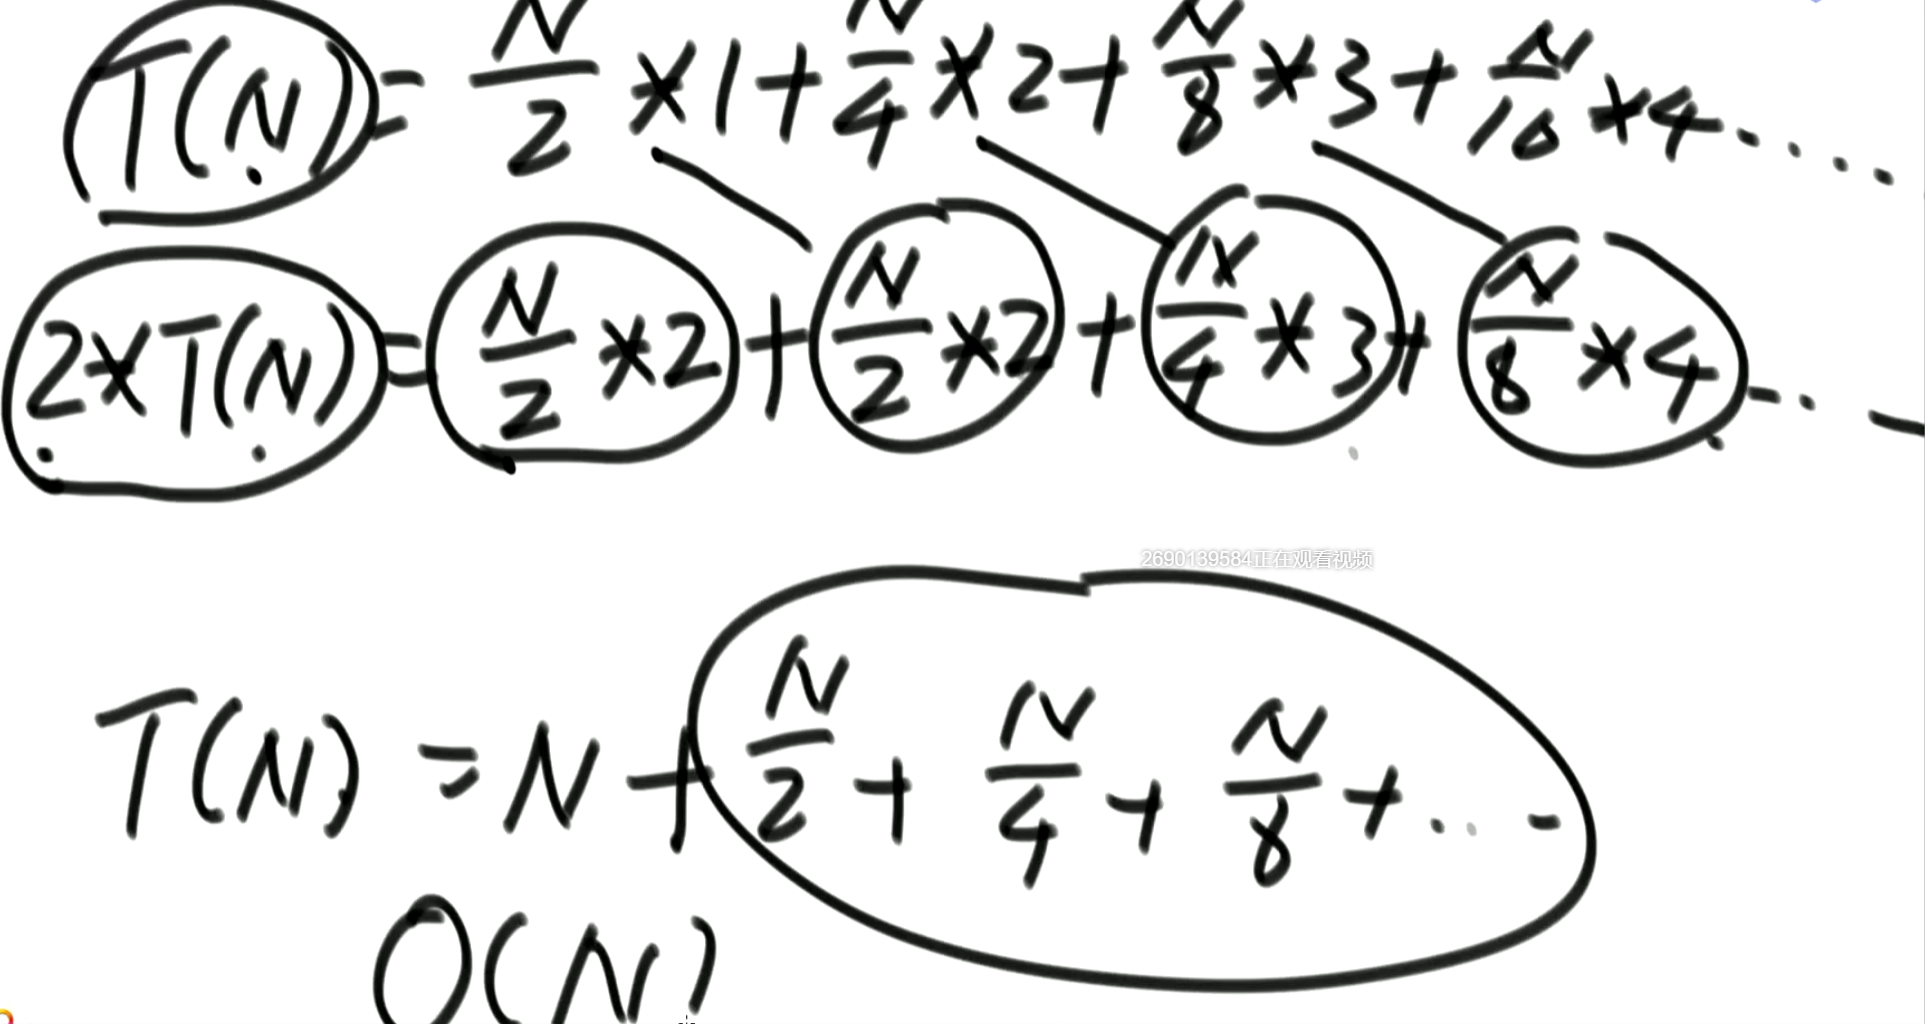 T(N) = N/2 × 1 + N/4 × 2 + N/8 × 3 + N/16 × 4 .....
2 × T(N) = N/2 × 2 + N/2 × 2 + N/4 × 3 + N/8 × 4 ...
2690139584正在观看视频
T(N) = N + N/2 + N/4 + N/8 + ...
O(N)